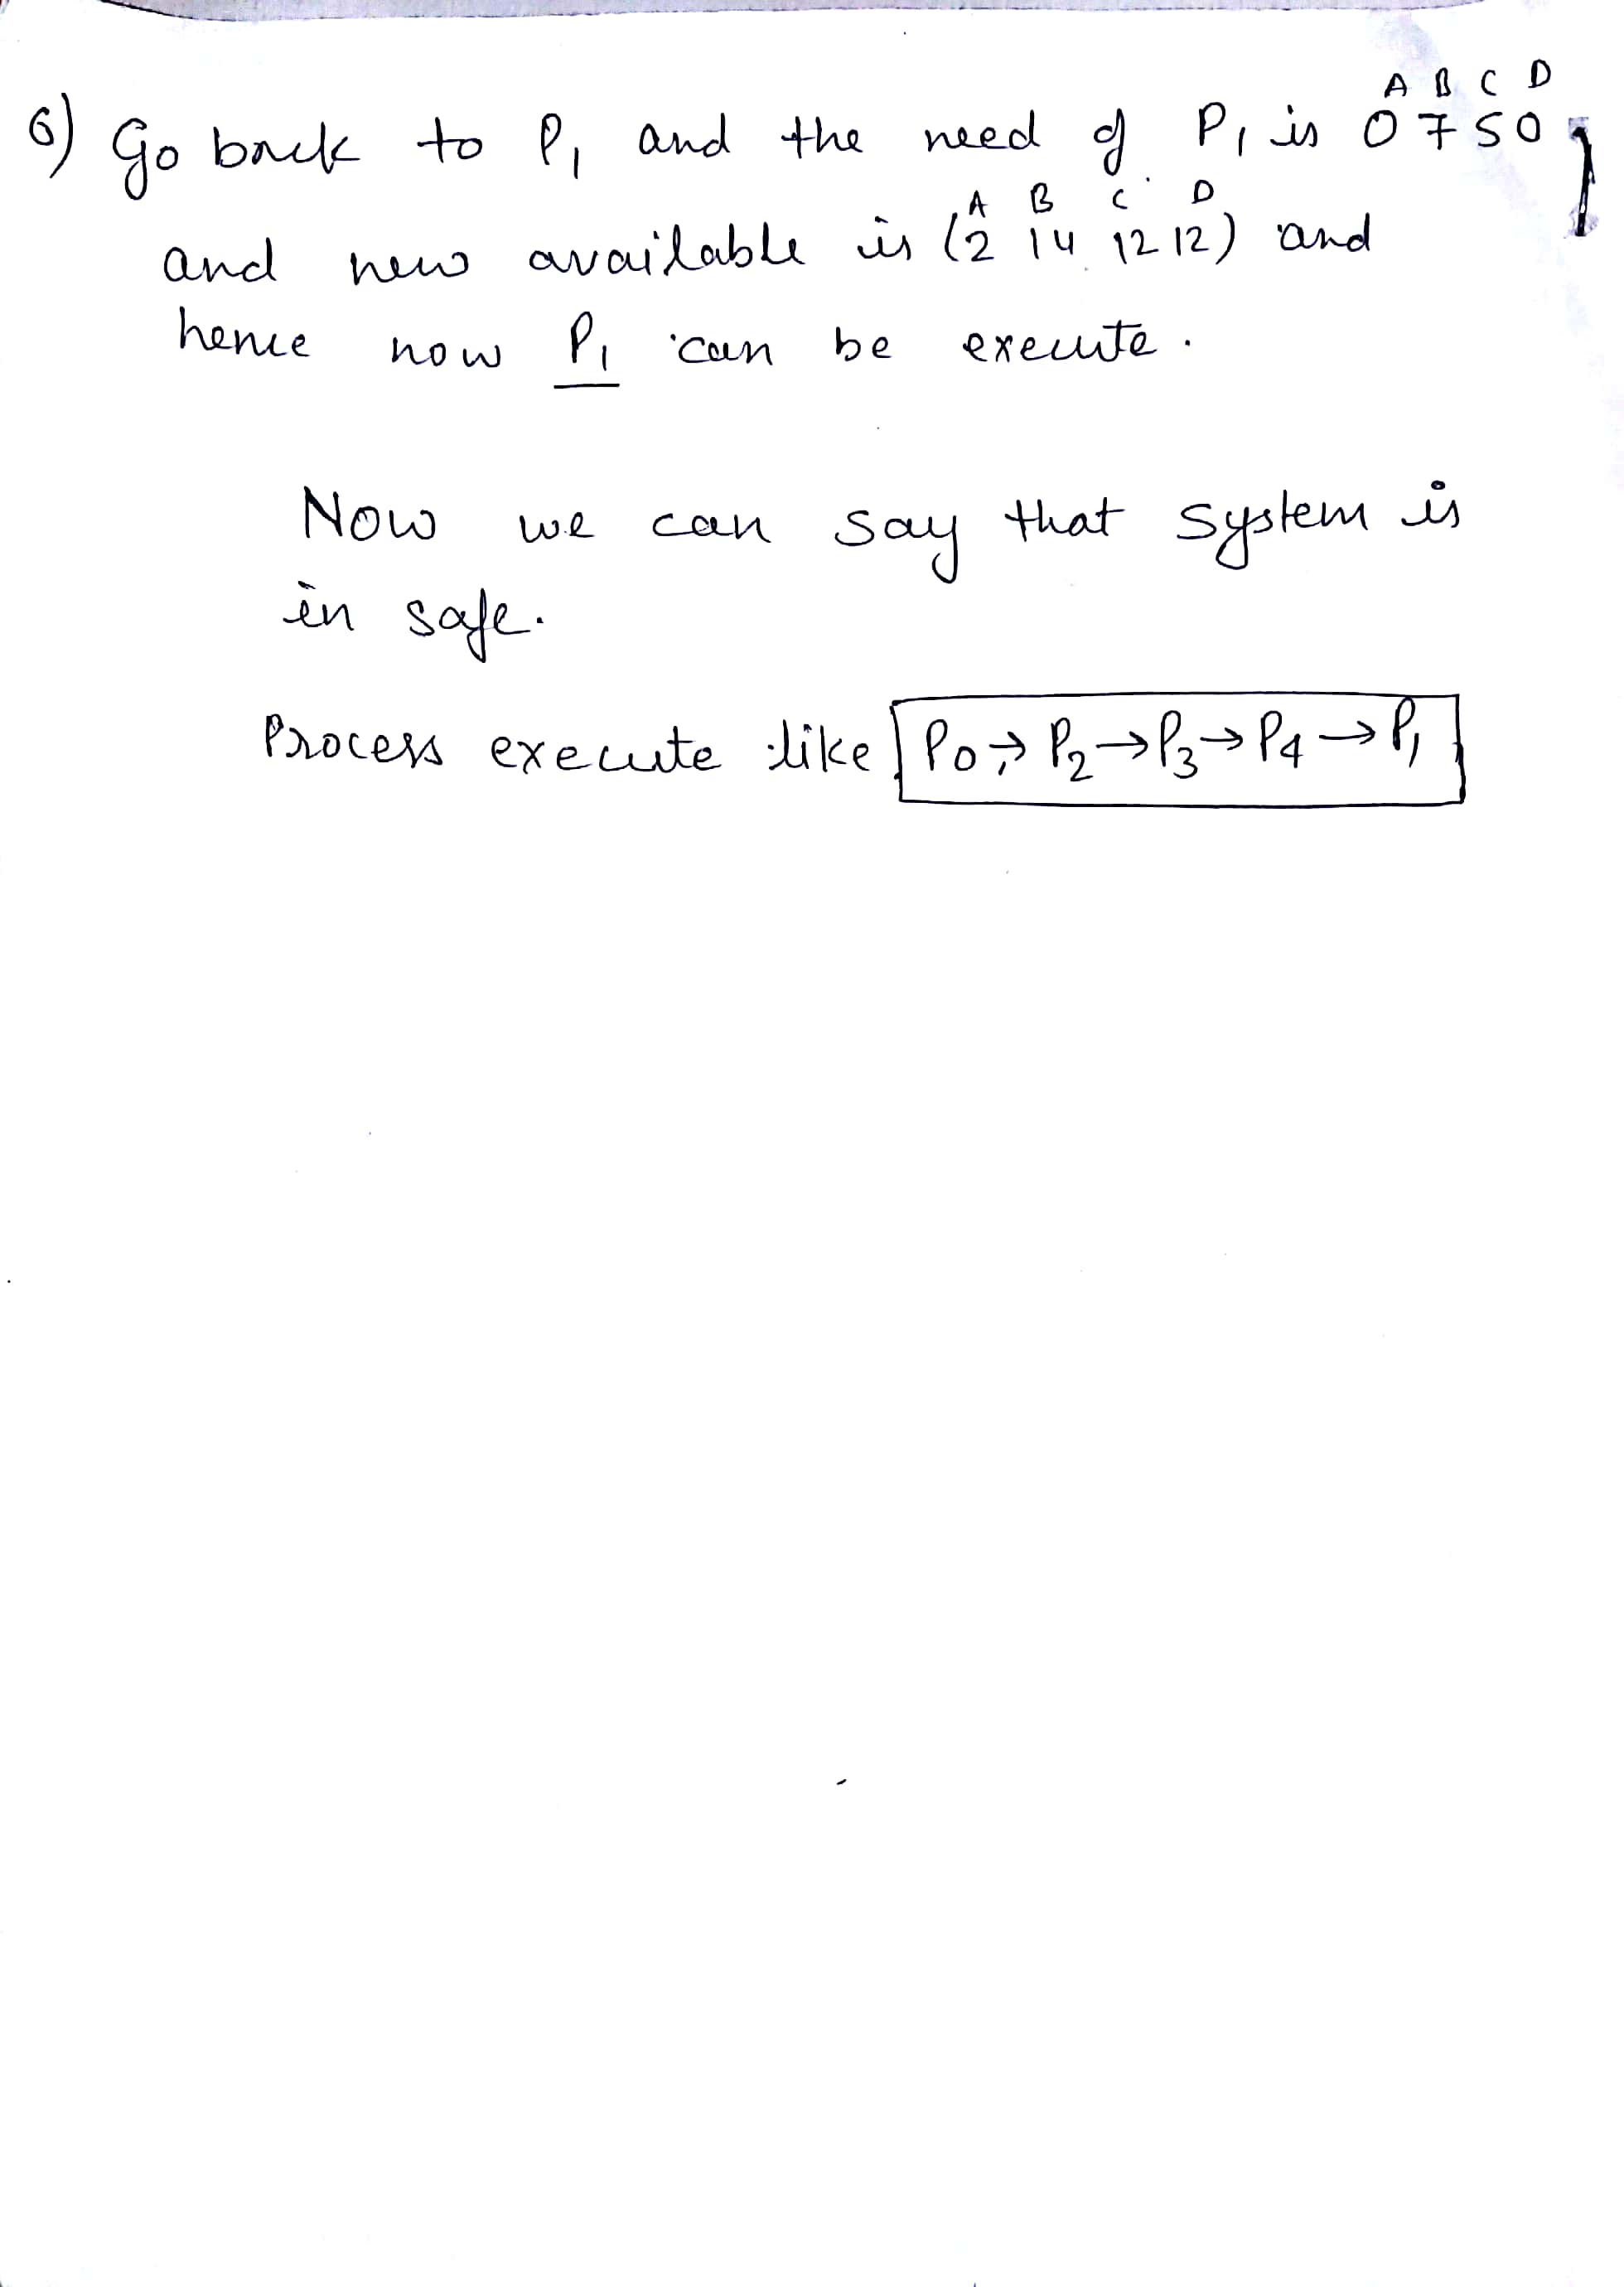 A B C D
6) Go back to P1 and the need of P1 is 0 7 5 0,
A B C D
and new available is (2 14 12 12) and
hence now P1 can be execute.
Now we can say that system is
in safe.
Process execute like P0 → P2 → P3 → P4 → P1